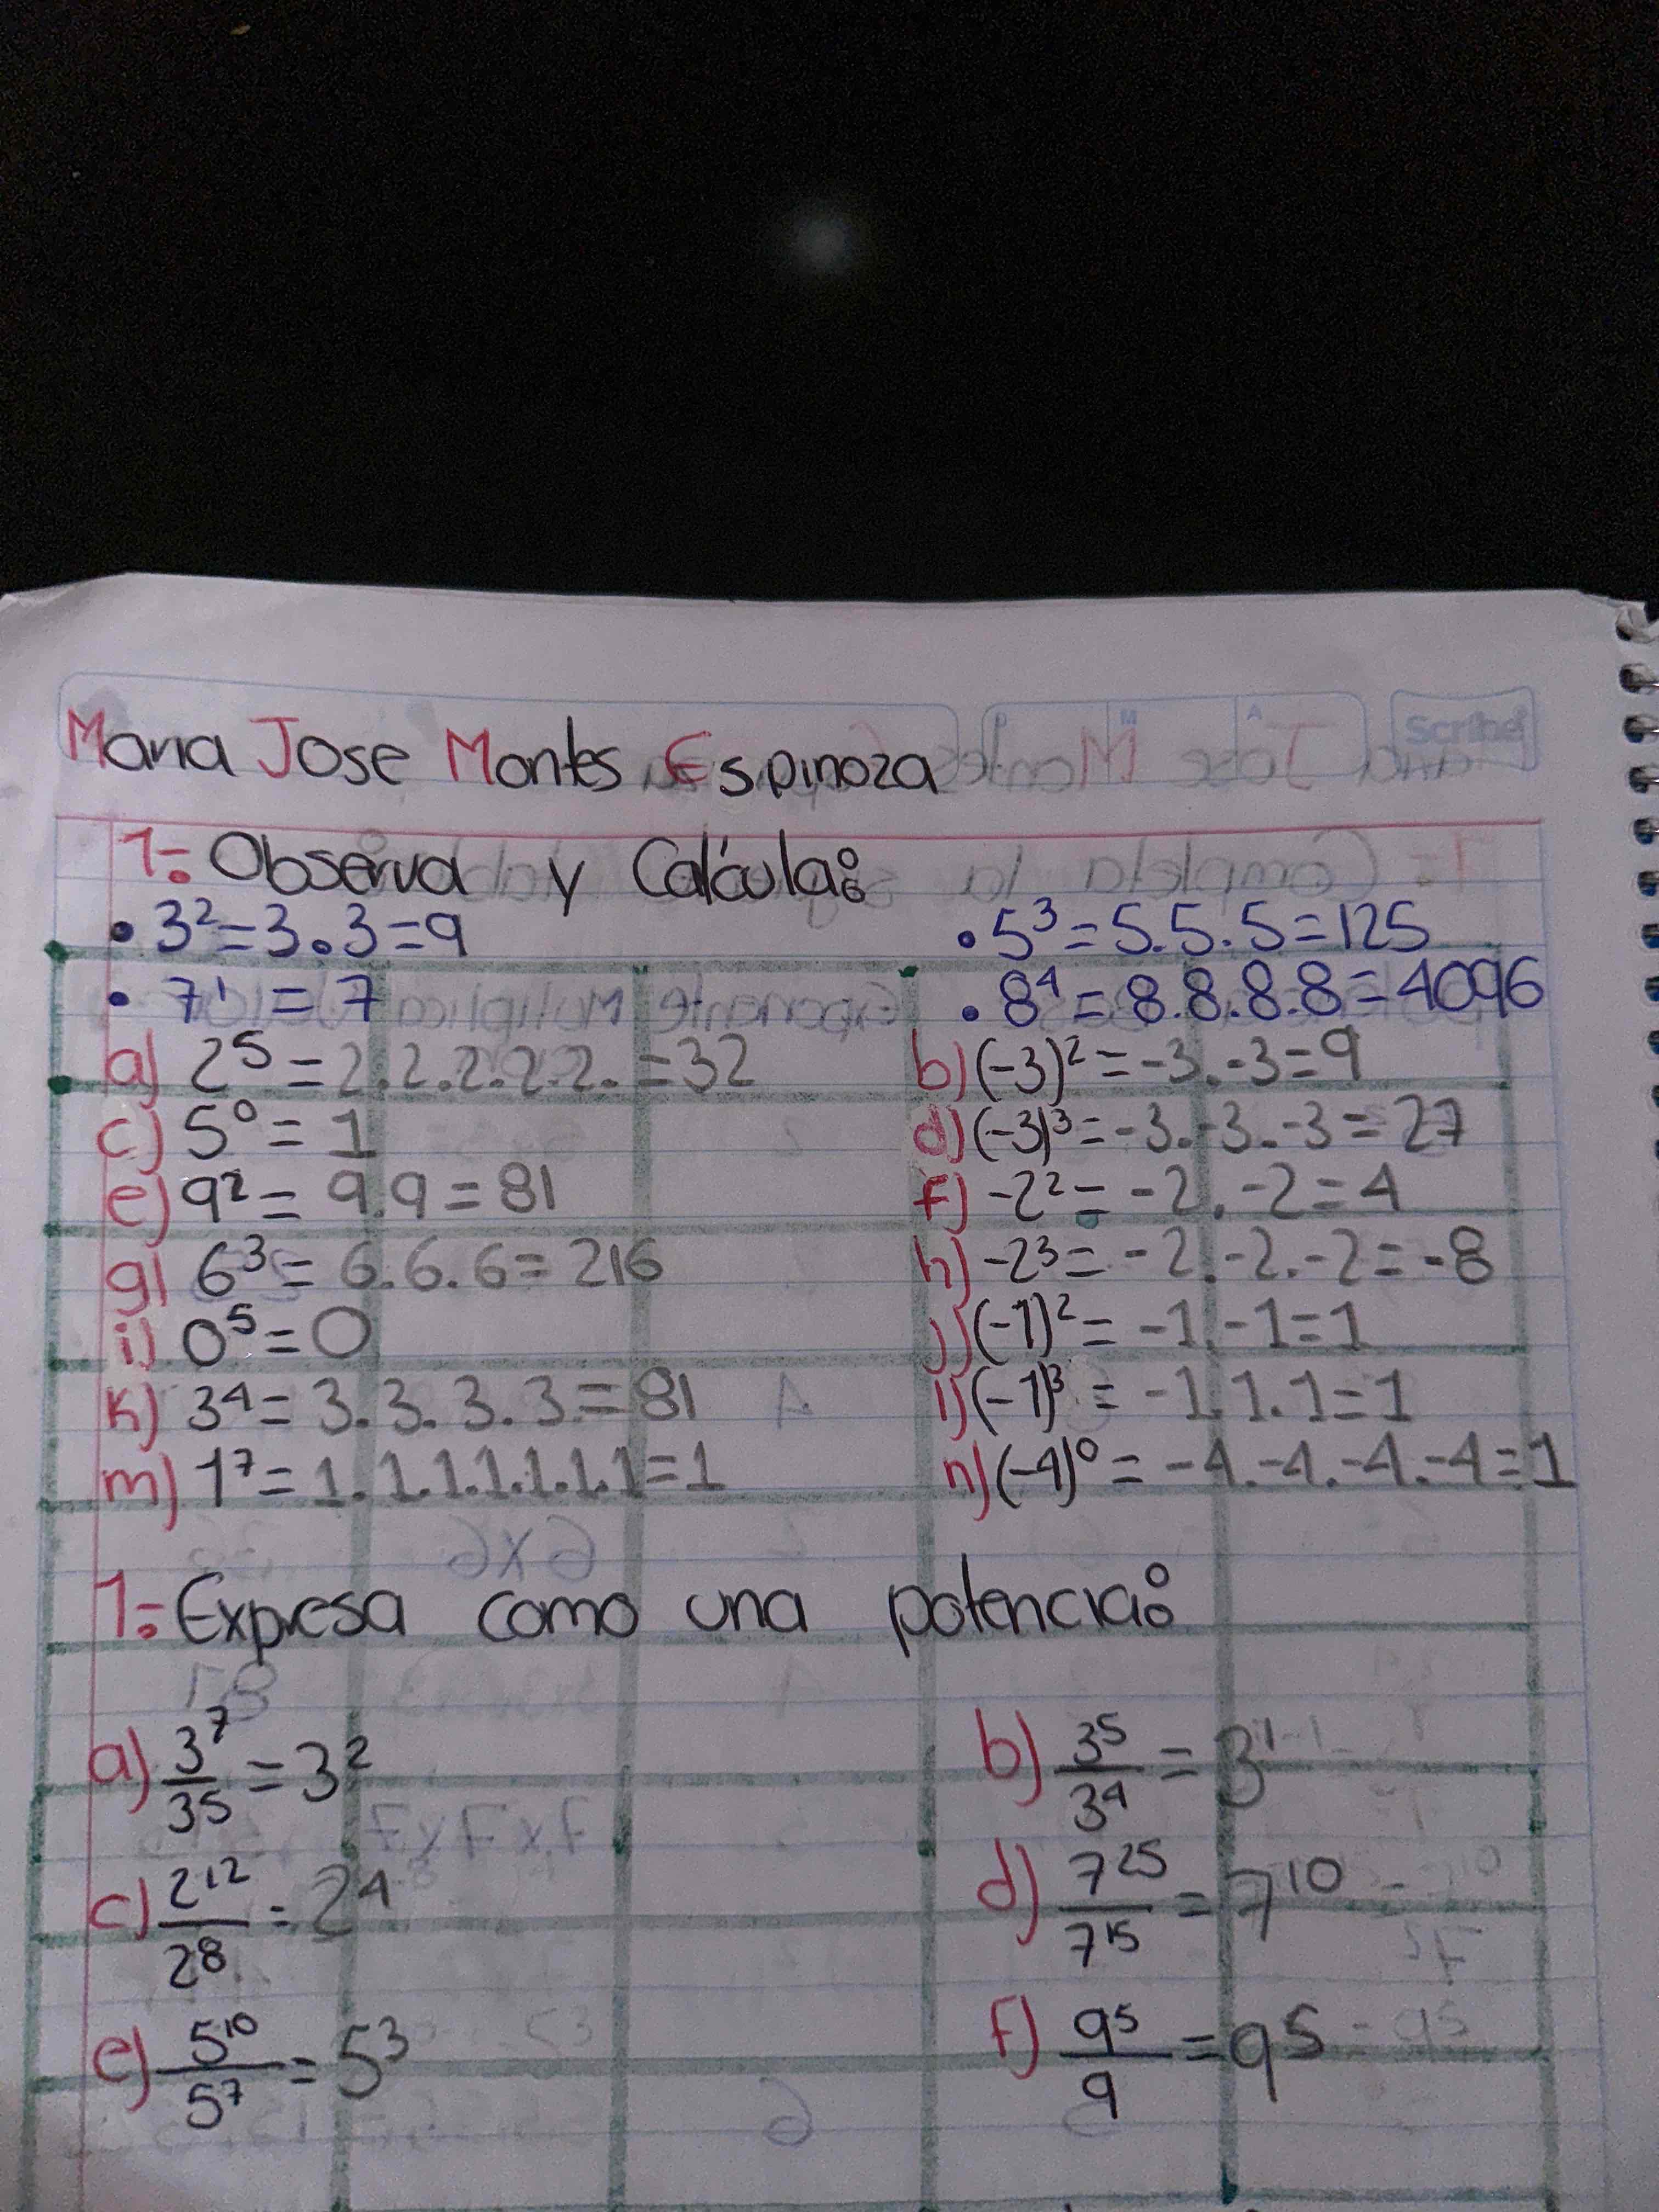 Scribe
Maria Jose Montes Espinoza
1.- Observa y Calcula:
• 3² = 3.3 = 9
• 5³ = 5.5.5 = 125
• 7¹ = 7
• 8⁴ = 8.8.8.8 = 4096
a) 2⁵ = 2.2.2.2.2. = 32
b) (-3)² = -3.-3 = 9
c) 5⁰ = 1
d) (-3)³ = -3.-3.-3 = 27
e) 9² = 9.9 = 81
f) -2² = -2.-2 = 4
g) 6³ = 6.6.6 = 216
h) -2³ = -2.-2.-2 = -8
i) 0⁵ = 0
j) (-1)² = -1.-1 = 1
k) 3⁴ = 3.3.3.3. = 81
l) (-1)³ = -1.1.1 = 1
m) 1⁷ = 1.1.1.1.1.1.1 = 1
n) (-4)⁰ = -4.-4.-4.-4 = 1
1.- Expresa como una potencia:
a) 3⁷/3⁵ = 3²
b) 3⁵/3⁴ = 3¹
c) 2¹²/2⁸ = 2⁴
d) 7²⁵/7¹⁵ = 7¹⁰
e) 5¹⁰/5⁷ = 5³
f) 9⁵/9 = 9⁵